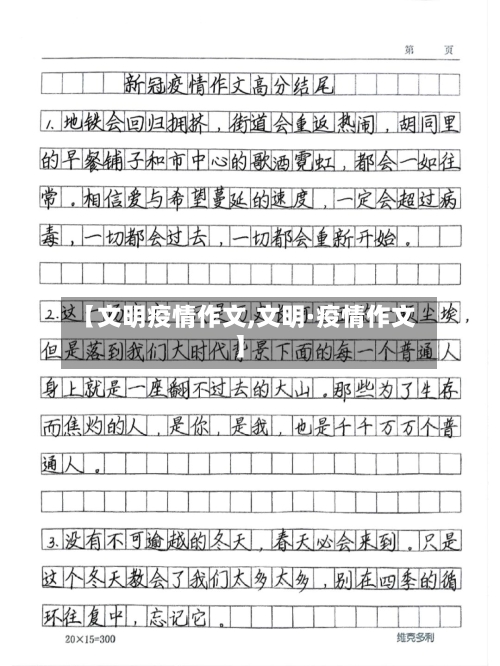 第 页
新冠疫情作文高分结尾
1.地铁会回归拥挤，街道会重返热闹，胡同里
的早餐铺子和市中心的歌酒霓虹，都会一如往
常。相信爱与希望蔓延的速度，一定会超过病
毒，一切都会过去，一切都会重新开始。
2.这 尘埃，
【文明疫情作文,文明·疫情作文
】
但是落到我们大时代背景下面的每一个普通人
身上就是一座翻不过去的大山。那些为了生存
而焦灼的人，是你，是我，也是千千万万个普
通人。
3.没有不可逾越的冬天，春天必会来到。只是
这个冬天教会了我们太多太多，别在四季的循
环往复中，忘记它。
20×15=300 维克多利